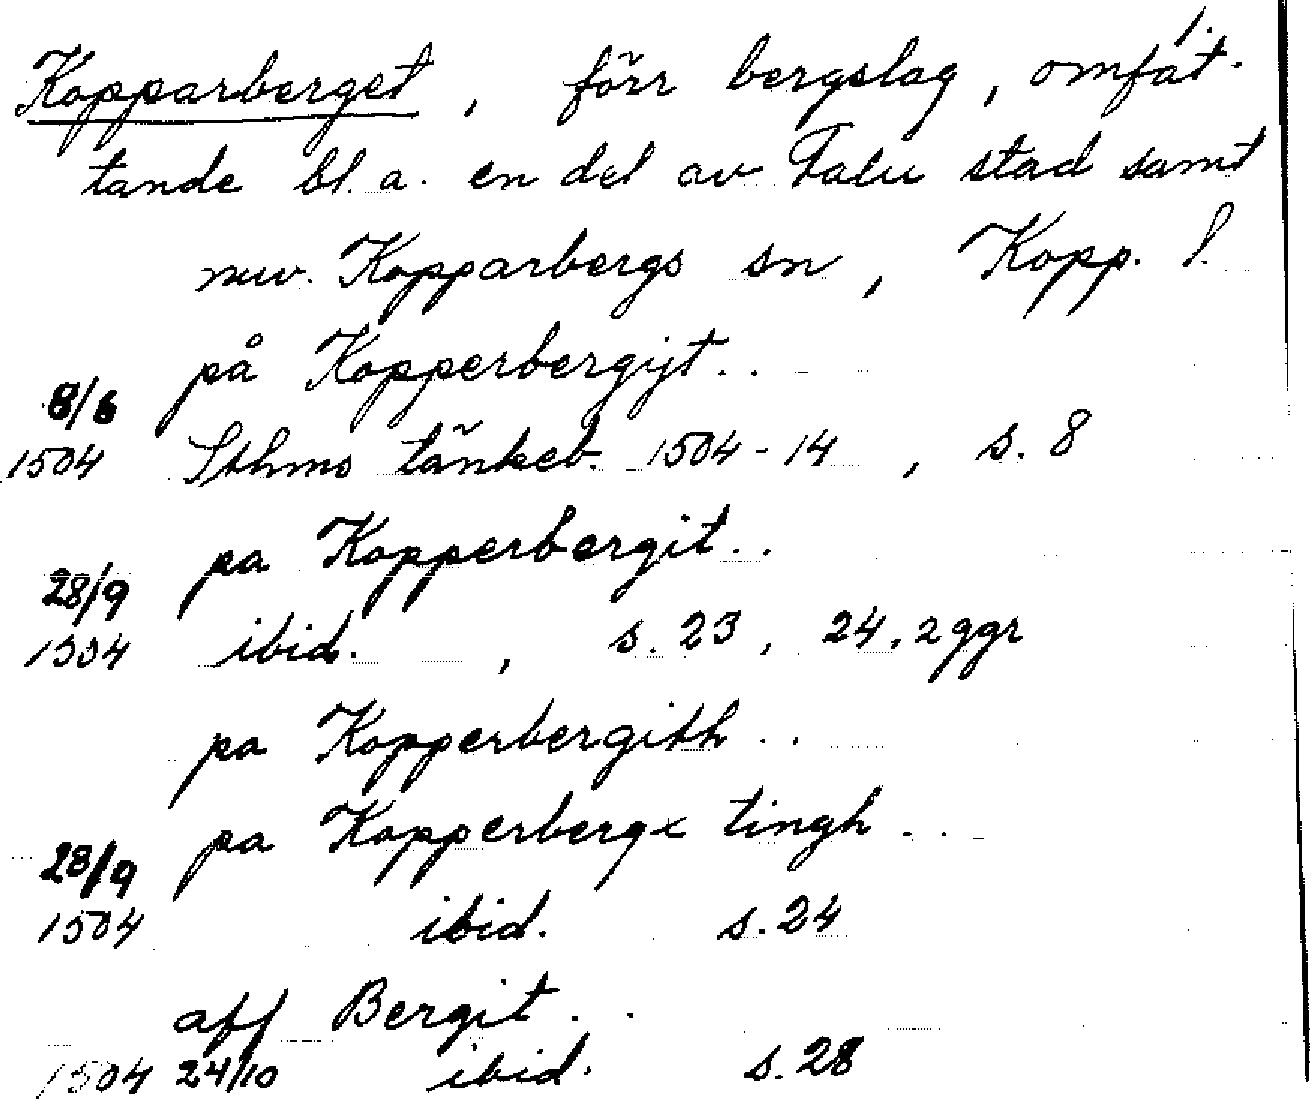 1.
Kopparberget, förr bergslag, omfat-
tande bl. a. en del av Falu stad samt
nuv. Kopparbergs sn, Kopp. l.
på Kopperbergijt..
8/6
1504 Sthms tänkeb. 1504-14, s. 8
pa Kopperbergit..
28/9
1504 ibid., s. 23, 24, 2 ggr
pa Kopperbergith..
pa Kopperbergx tingh...
28/9
1504 ibid. s. 24
aff Bergit..
1504 24/10 ibid. s. 28